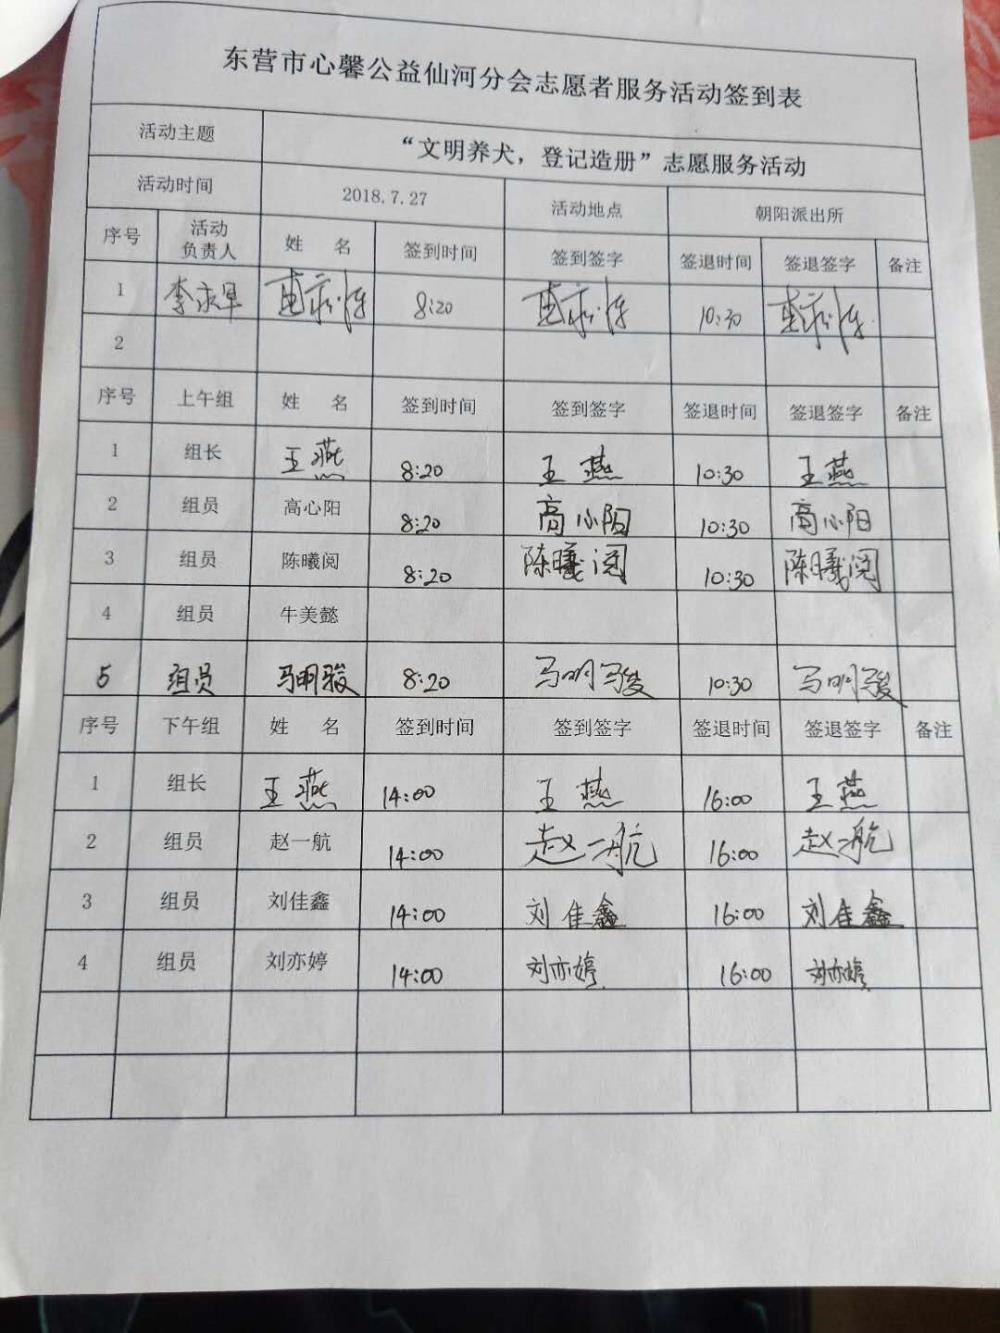 东营市心馨公益仙河分会志愿者服务活动签到表
活动主题 “文明养犬，登记造册”志愿服务活动
活动时间 2018.7.27 活动地点 朝阳派出所
序号 活动负责人 姓 名 签到时间 签到签字 签退时间 签退签字 备注
1 李 8:20 10:30
2
序号 上午组 姓 名 签到时间 签到签字 签退时间 签退签字 备注
1 组长 王燕 8:20 王燕 10:30 王燕
2 组员 高心阳 8:20 高心阳 10:30 高心阳
3 组员 陈曦阅 8:20 陈曦阅 10:30 陈曦阅
4 组员 牛美懿
5 组员 马明骏 8:20 马明骏 10:30 马明骏
序号 下午组 姓 名 签到时间 签到签字 签退时间 签退签字 备注
1 组长 王燕 14:00 王燕 16:00 王燕
2 组员 赵一航 14:00 赵一航 16:00 赵一航
3 组员 刘佳鑫 14:00 刘佳鑫 16:00 刘佳鑫
4 组员 刘亦婷 14:00 刘亦婷 16:00 刘亦婷